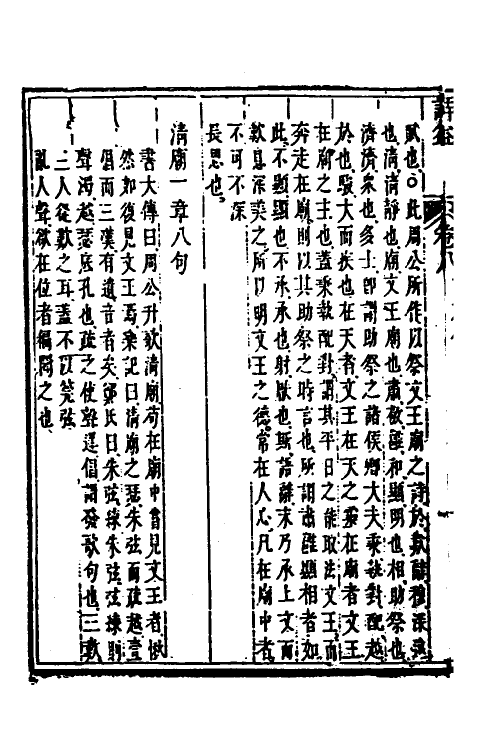 詩經 卷八
賦也○此周公所作以祭文王廟之詩於歎辭穆深遠
也清清靜也廟文王廟也肅敬雝和顯明也相助祭也
濟濟衆也多士即謂助祭之諸侯卿大夫秉執對配越
於也駿大而疾也在天者文王在天之靈在廟者文王
在廟之主也蓋秉執配對謂其平日之能取法文王而
奔走在廟則以其助祭之時言也所謂肅雝顯相者如
此不顯顯也不承承也射厭也斯語辭末乃承上文而
歎息深美之所以明文王之德常在人心凡在廟中者
不可不深
長思也
清廟一章八句
書大傳曰周公升歌清廟苟在廟中嘗見文王者愀
然如復見文王焉樂記曰清廟之瑟朱弦而疏越壹
倡而三歎有遺音者矣鄭氏曰朱弦練朱弦弦練則
聲濁越瑟底孔也疏之使聲遲倡謂發歌句也三歎
三人從歎之耳蓋不以筦弦
亂人聲欲在位者徧聞之也